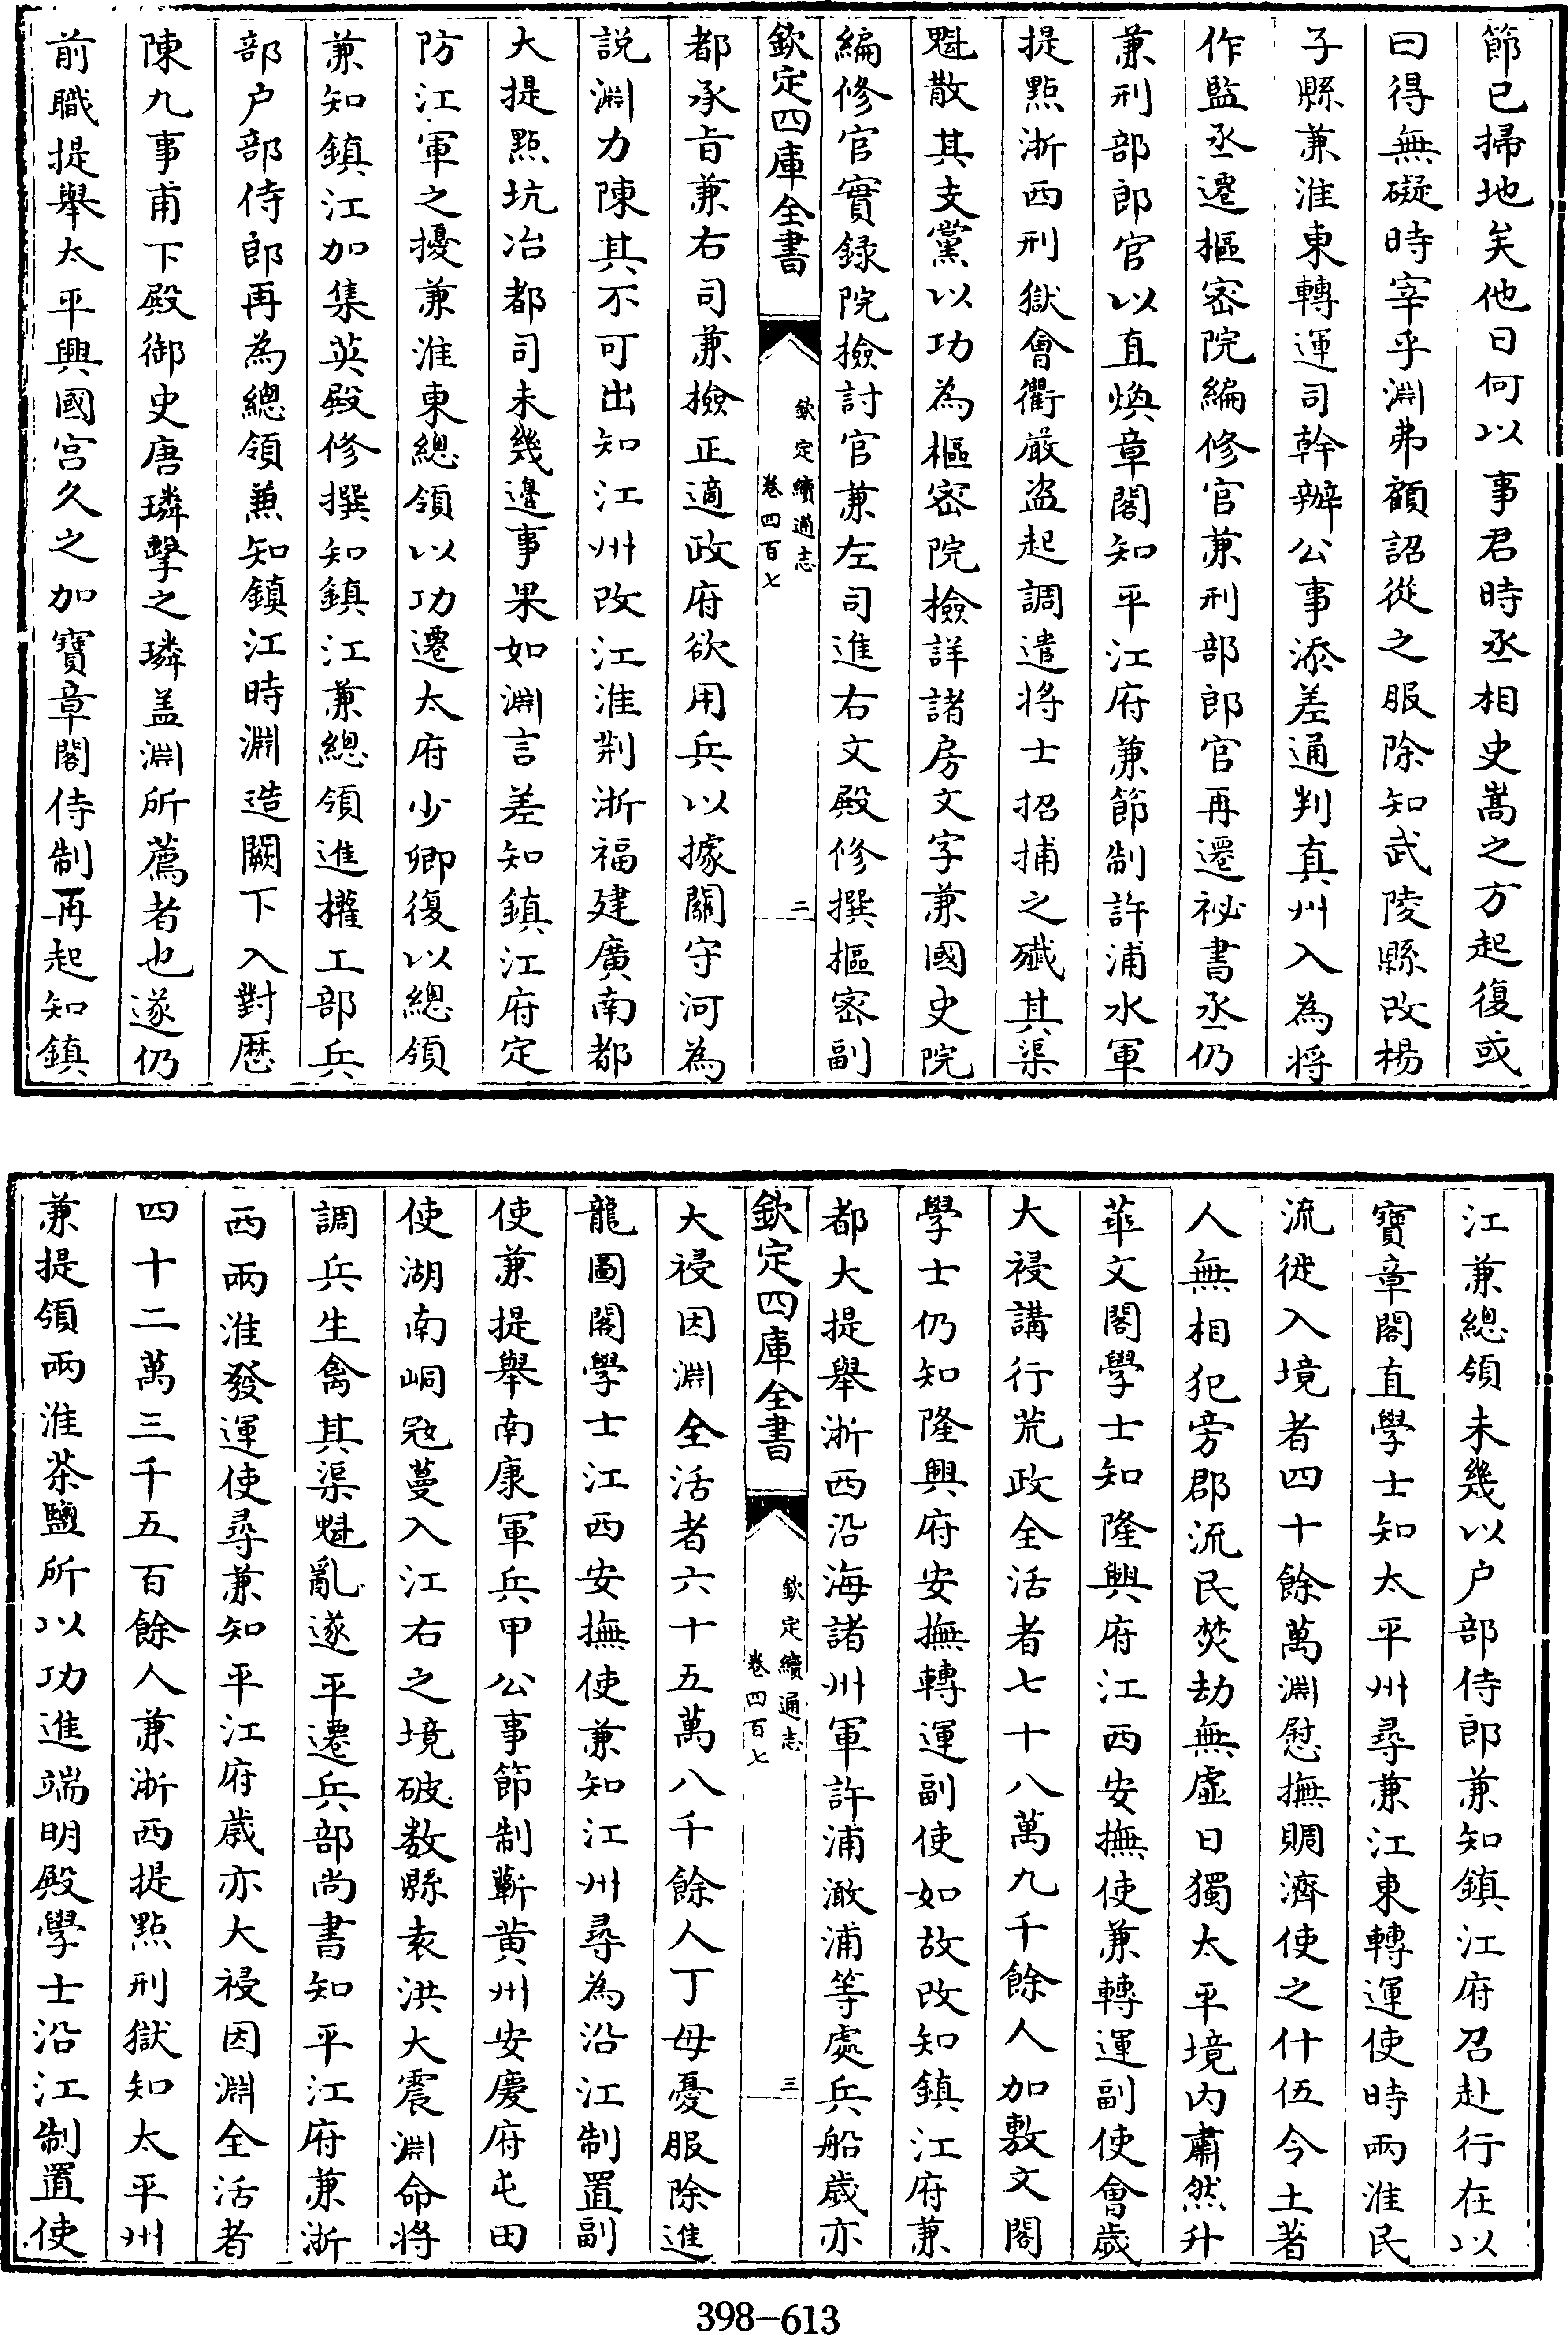 節已掃地矣他日何以事君時丞相史嵩之方起復或
曰得無礙時宰乎淵弗顧詔從之服除知武陵縣改楊
子縣兼淮東轉運司幹辦公事添差通判真州入為將
作監丞遷樞密院編修官兼刑部郎官再遷祕書丞仍
兼刑部郎官以直煥章閣知平江府兼節制許浦水軍
提點浙西刑獄會衢嚴盜起調遣將士招捕之殲其渠
魁散其支黨以功為樞密院檢詳諸房文字兼國史院
編修官實錄院檢討官兼左司進右文殿修撰樞密副
欽定四庫全書
欽定續通志
卷四百七
二
都承旨兼右司兼檢正適政府欲用兵以據關守河為
説淵力陳其不可出知江州改江淮荆浙福建廣南都
大提點坑冶都司未幾邊事果如淵言差知鎮江府定
防江軍之擾兼淮東總領以功遷太府少卿復以總領
兼知鎮江加集英殿修撰知鎮江兼總領進權工部兵
部户部侍郎再為總領兼知鎮江時淵造闕下入對歷
陳九事甫下殿御史唐璘擊之璘蓋淵所薦者也遂仍
前職提舉太平興國宫久之加寶章閣侍制再起知鎮
江兼總領未幾以户部侍郎兼知鎮江府召赴行在以
寶章閣直學士知太平州尋兼江東轉運使時兩淮民
流徙入境者四十餘萬淵慰撫賙濟使之什伍令土著
人無相犯旁郡流民焚劫無虛日獨太平境内肅然升
華文閣學士知隆興府江西安撫使兼轉運副使會歲
大祲講行荒政全活者七十八萬九千餘人加敷文閣
學士仍知隆興府安撫轉運副使如故改知鎮江府兼
都大提舉浙西沿海諸州軍許浦澉浦等處兵船歲亦
欽定四庫全書
欽定續通志
卷四百七
三
大祲因淵全活者六十五萬八千餘人丁母憂服除進
龍圖閣學士江西安撫使兼知江州尋為沿江制置副
使兼提舉南康軍兵甲公事節制蘄黄州安慶府屯田
使湖南峒冦蔓入江右之境破数縣袁洪大震淵命將
調兵生禽其渠魁亂遂平遷兵部尚書知平江府兼浙
西兩淮發運使尋兼知平江府歲亦大祲因淵全活者
四十二萬三千五百餘人兼浙西提點刑獄知太平州
兼提領兩淮茶鹽所以功進端明殿學士沿江制置使
398-613